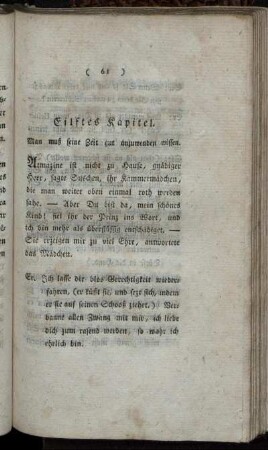 ( 61 )
Eilftes Kapitel.
Man muß seine Zeit gut anzuwenden wissen.
Amazine ist nicht zu Hause, gnädiger
Herr, sagte Suschen, ihr Kammermädchen,
die man weiter oben einmal roth werden
sahe. — Aber Du bist da, mein schönes
Kind! fiel ihr der Prinz ins Wort, und
ich bin mehr als überflüssig entschädiget. —
Sie erzeigen mir zu viel Ehre, antwortete
das Mädchen.
Er. Ich lasse dir blos Gerechtigkeit wieder-
fahren. (er küßt sie, und sezt sich, indem
er sie auf seinen Schooß ziehet.) Ver-
banne allen Zwang mit mir, ich liebe
dich zum rasend werden, so wahr ich
ehrlich bin.